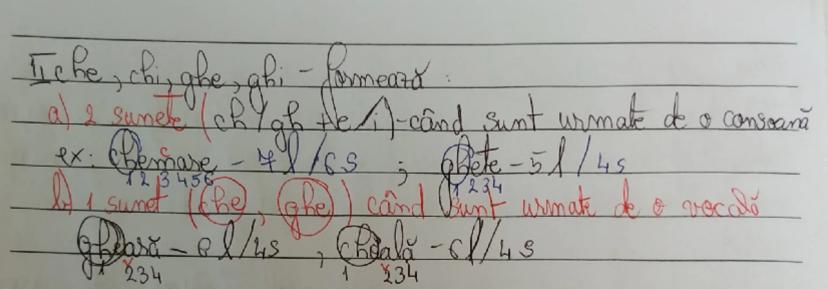 II che, chi, ghe, ghi - formează:
a) 2 sunete (ch/gh +e/i)-când sunt urmate de o consoană
ex: chemare - 7l/6s ; ghete - 5l/4s
1 2 3 4 5 6 1 2 3 4
b) 1 sunet (che, ghe) când sunt urmate de o vocală
gheară - 6l/4s, cheală - 6l/4s
1 234 1 234